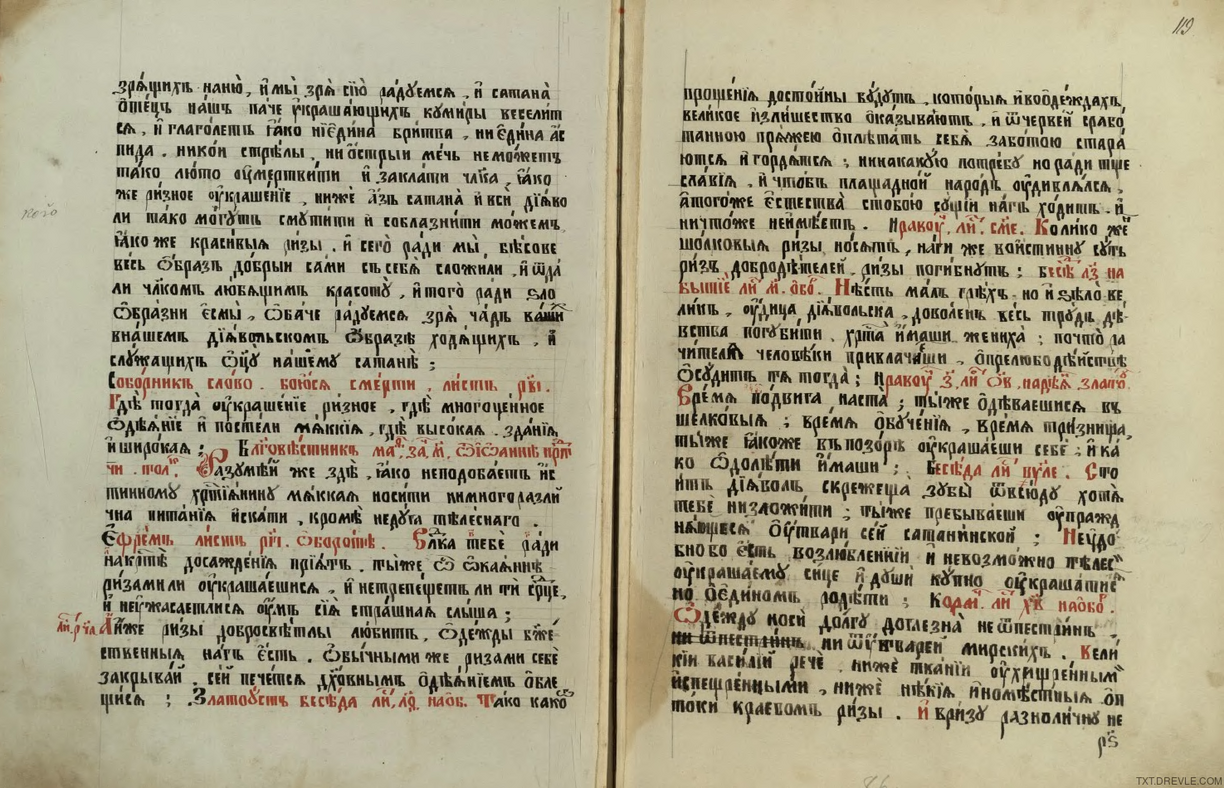 зрѧ́щихъ на́ню̀, и҆мы̀ зрѧ̀ сїю̀ ра́дꙋемсѧ, и҆ сатана̀
ѻ҆те́цъ на́шъ па́че ᲂу҆краша́ющихъ кꙋми́ры весели́т
сѧ, и҆ глаго́летъ ꙗ҆́ко нїе҆ди́на бри́тва, ни е҆ди́на а҆с
пида, ни́кои стрѣ́лы, ни ѻ҆́стрыи ме́чь немо́жетъ
та́ко лю́то ᲂу҆мертви́ти и҆ закла́ти чл҃ка, ꙗ҆́ко
же ри́зное ᲂу҆краше́нїе, ни́же а҆́зъ сатана̀ и҆ всѝ дїѧ́во
ли та́ко мо́гꙋтъ смꙋти́ти и҆ соблазни́ти мо́жемъ
ꙗ҆́коже краси́выѧ ри́зы. и҆ сего̀ ра́ди мы̀, бѣ́сове
ве́сь ѻ҆́бразъ до́брыи са́ми съ себѧ̀ сложи́ли, и҆ ѿда́
ли чл҃комъ лю́бѧщимъ красотꙋ̀, и҆ того̀ ра́ди ѕло
ѻ҆бра́зни є҆смы̀, ѻ҆ба́че ра́дꙋемсѧ зрѧ̀ ча́дъ ва́ши
в на́шемъ дїѧ́вольскомъ ѻ҆́бразѣ ходѧ́щихъ, и҆
слꙋжа́щихъ ѻ҆ц҃ꙋ̀ на́шемꙋ сатанѣ̀ ;
Собо́рникъ сло́во. бою́сѧ сме́рти, ли́стъ рв҃і.
Гдѣ̀ тогда̀ ᲂу҆краше́нїе ри́зное, гдѣ̀ многоцѣ́нное
ѻ҆дѣѧ́нїе и҆ посте́ли мѧ́ккїѧ, гдѣ̀ высо́каѧ зда́нїѧ
и҆ широ́каѧ ; Бл҃говѣ́стникъ ма҃, за. м҃, ѿ і҆ѡа́нне прⷣт
чи. тол. Разꙋмѣ́й же здѣ̀, ꙗ҆́ко неподоба́етъ и҆с
тинномꙋ хрⷭ҇тїѧ́нинꙋ мѧ́ккаѧ носи́ти ни многоразли́
чна пита́нїѧ и҆ска́ти, кромѣ̀ недꙋ́га тѣле́снаго.
Є҆фре́мъ ли́стъ рн҃і. ѻ҆боро́тѣ. Влⷣка тебѐ ра́ди
на крⷭ҇тѣ̀ досажде́нїѧ прїѧ́тъ. ты́же ѽ ѻ҆каѧ́нне
ри́зами ли ᲂу҆краша́ешисѧ, и҆ нетрепе́щетъ ли тѝ срⷣце,
и҆ неꙋжаса́етлисѧ ᲂу҆́мъ сїѧ̀ стра́шнаѧ слы́ша ;
ли҃. рч҃а А҆́ иже ри́зы добросвѣ́тлы лю́битъ, ѻ҆де́жды бж҃е
ственныѧ на́гъ є҆́сть. ѻ҆бы́чными же ри́зами себѐ
закрыва́й, се́й пече́тсѧ дх҃о́внымъ ѻ҆дѣѧ́нїемъ ѻ҆бле
щи́сѧ ; Златоꙋ́стъ бесѣ́да ли҃, лѳ҃, на ѻ҆б. Та́ко ка́ко
119
проще́нїѧ досто́йны бꙋ́дꙋтъ, кото́рыѧ и҆ во ѻ҆де́ждахъ,
вели́кое и҆зли́шество ѻ҆ка́зываютъ, и҆ ѿ черве́й срабо́
танною прѧ́жею ѻ҆плѣта́ть себѧ̀ забо́тою стара́
ютсѧ и҆ гордѧ́тсѧ ; никакꙋ́ю потре́бꙋ но ра́ди тще
сла́вїѧ, и҆ что́бъ площадно́й наро́дъ ᲂу҆дивлѧ́лсѧ,
а҆ того́же є҆стества̀ с тобо́ю сꙋ́щїи на́гъ хо́дитъ. и҆
ничто́же неи҆мѣ́етъ. Нраво́ꙋч, ли҃. см҃е. Коли́ко же
шо́лковыѧ ри́зы но́сѧтъ, на́ги же вои́стиннꙋ сꙋ́ть
ри́зъ добродѣ́телей, ри́зы поги́бнꙋтъ ; бесѣ́. лз҃ на
бытїѐ ли҃ м҃. ѻ҆бо. Нѣ́сть ма́лъ грѣ́хъ. но и҆ ѕѣло̀ ве
ли́къ, ᲂу҆́дица дїѧ́вольска, дово́ленъ ве́сь трꙋ́дъ дѣ́
вства погꙋби́ти, хрⷭ҇та̀ и҆́маши жениха̀ ; почто̀ ра
чи́телѧ человѣ́ки привлача́еши, ѻ҆ прелюбодѣ́йствѣ
ѻ҆сꙋ́дитъ тѧ̀ тогда̀ ; Нраво́ꙋ҆ з҃. ли҃ ѻ҃в, на дѣѧ̑, злато́ꙋ.
Вре́мѧ по́двига наста̀ ; ты́же ѻ҆дѣва́ешисѧ въ
ше́лковыѧ ; вре́мѧ ѻ҆бꙋче́нїѧ, вре́мѧ три́знища,
ты́же ꙗ҆́коже въ позо́ръ ᲂу҆краша́еши себѐ ; и҆ ка́
ко ѻ҆долѣ́ти и҆́маши ; Бесѣ́да ли҃ вꙋле. Сто
и́тъ дїѧ́волъ скреже́ща зꙋ́бы ѿвсю́дꙋ хотѧ̀
тебѐ низложи́ти ; ты́же пребыва́еши ᲂу҆пражд
нѧ́ющесѧ ѻ҆ ᲂу҆́твари се́й сатани́нской ; Неꙋдо́
бно бо є҆́сть возлю́бленнїи и҆ невозмо́жно тѣле́с
ᲂу҆краша́емꙋ си́це и҆ дꙋшѝ кꙋ́пно ᲂу҆краша́тисѧ
но ѻ҆ є҆ди́номъ родѣ́ти ; Корм. ли҃ х҃в на ѻ҆бо.
Ѻ҆де́ждꙋ носѝ до́лгꙋ до глезна̀ не ѿпестри́нъ.
ни ѿпестри́нъ ни ѿ ᲂу҆́тварей мирски́хъ. вели́
кїи васи́лїй речѐ, ни́же тка́нїи ᲂу҆хищре́нным
и҆спещре́нными, ни́же нѣ́кїѧ и҆номѣ́стныѧ ѻ҆п
то́ки кра́евомъ ри́зы. И҆ в ри́зꙋ разноли́чнꙋ не
рѕ҃
TXT.DREVLE.COM